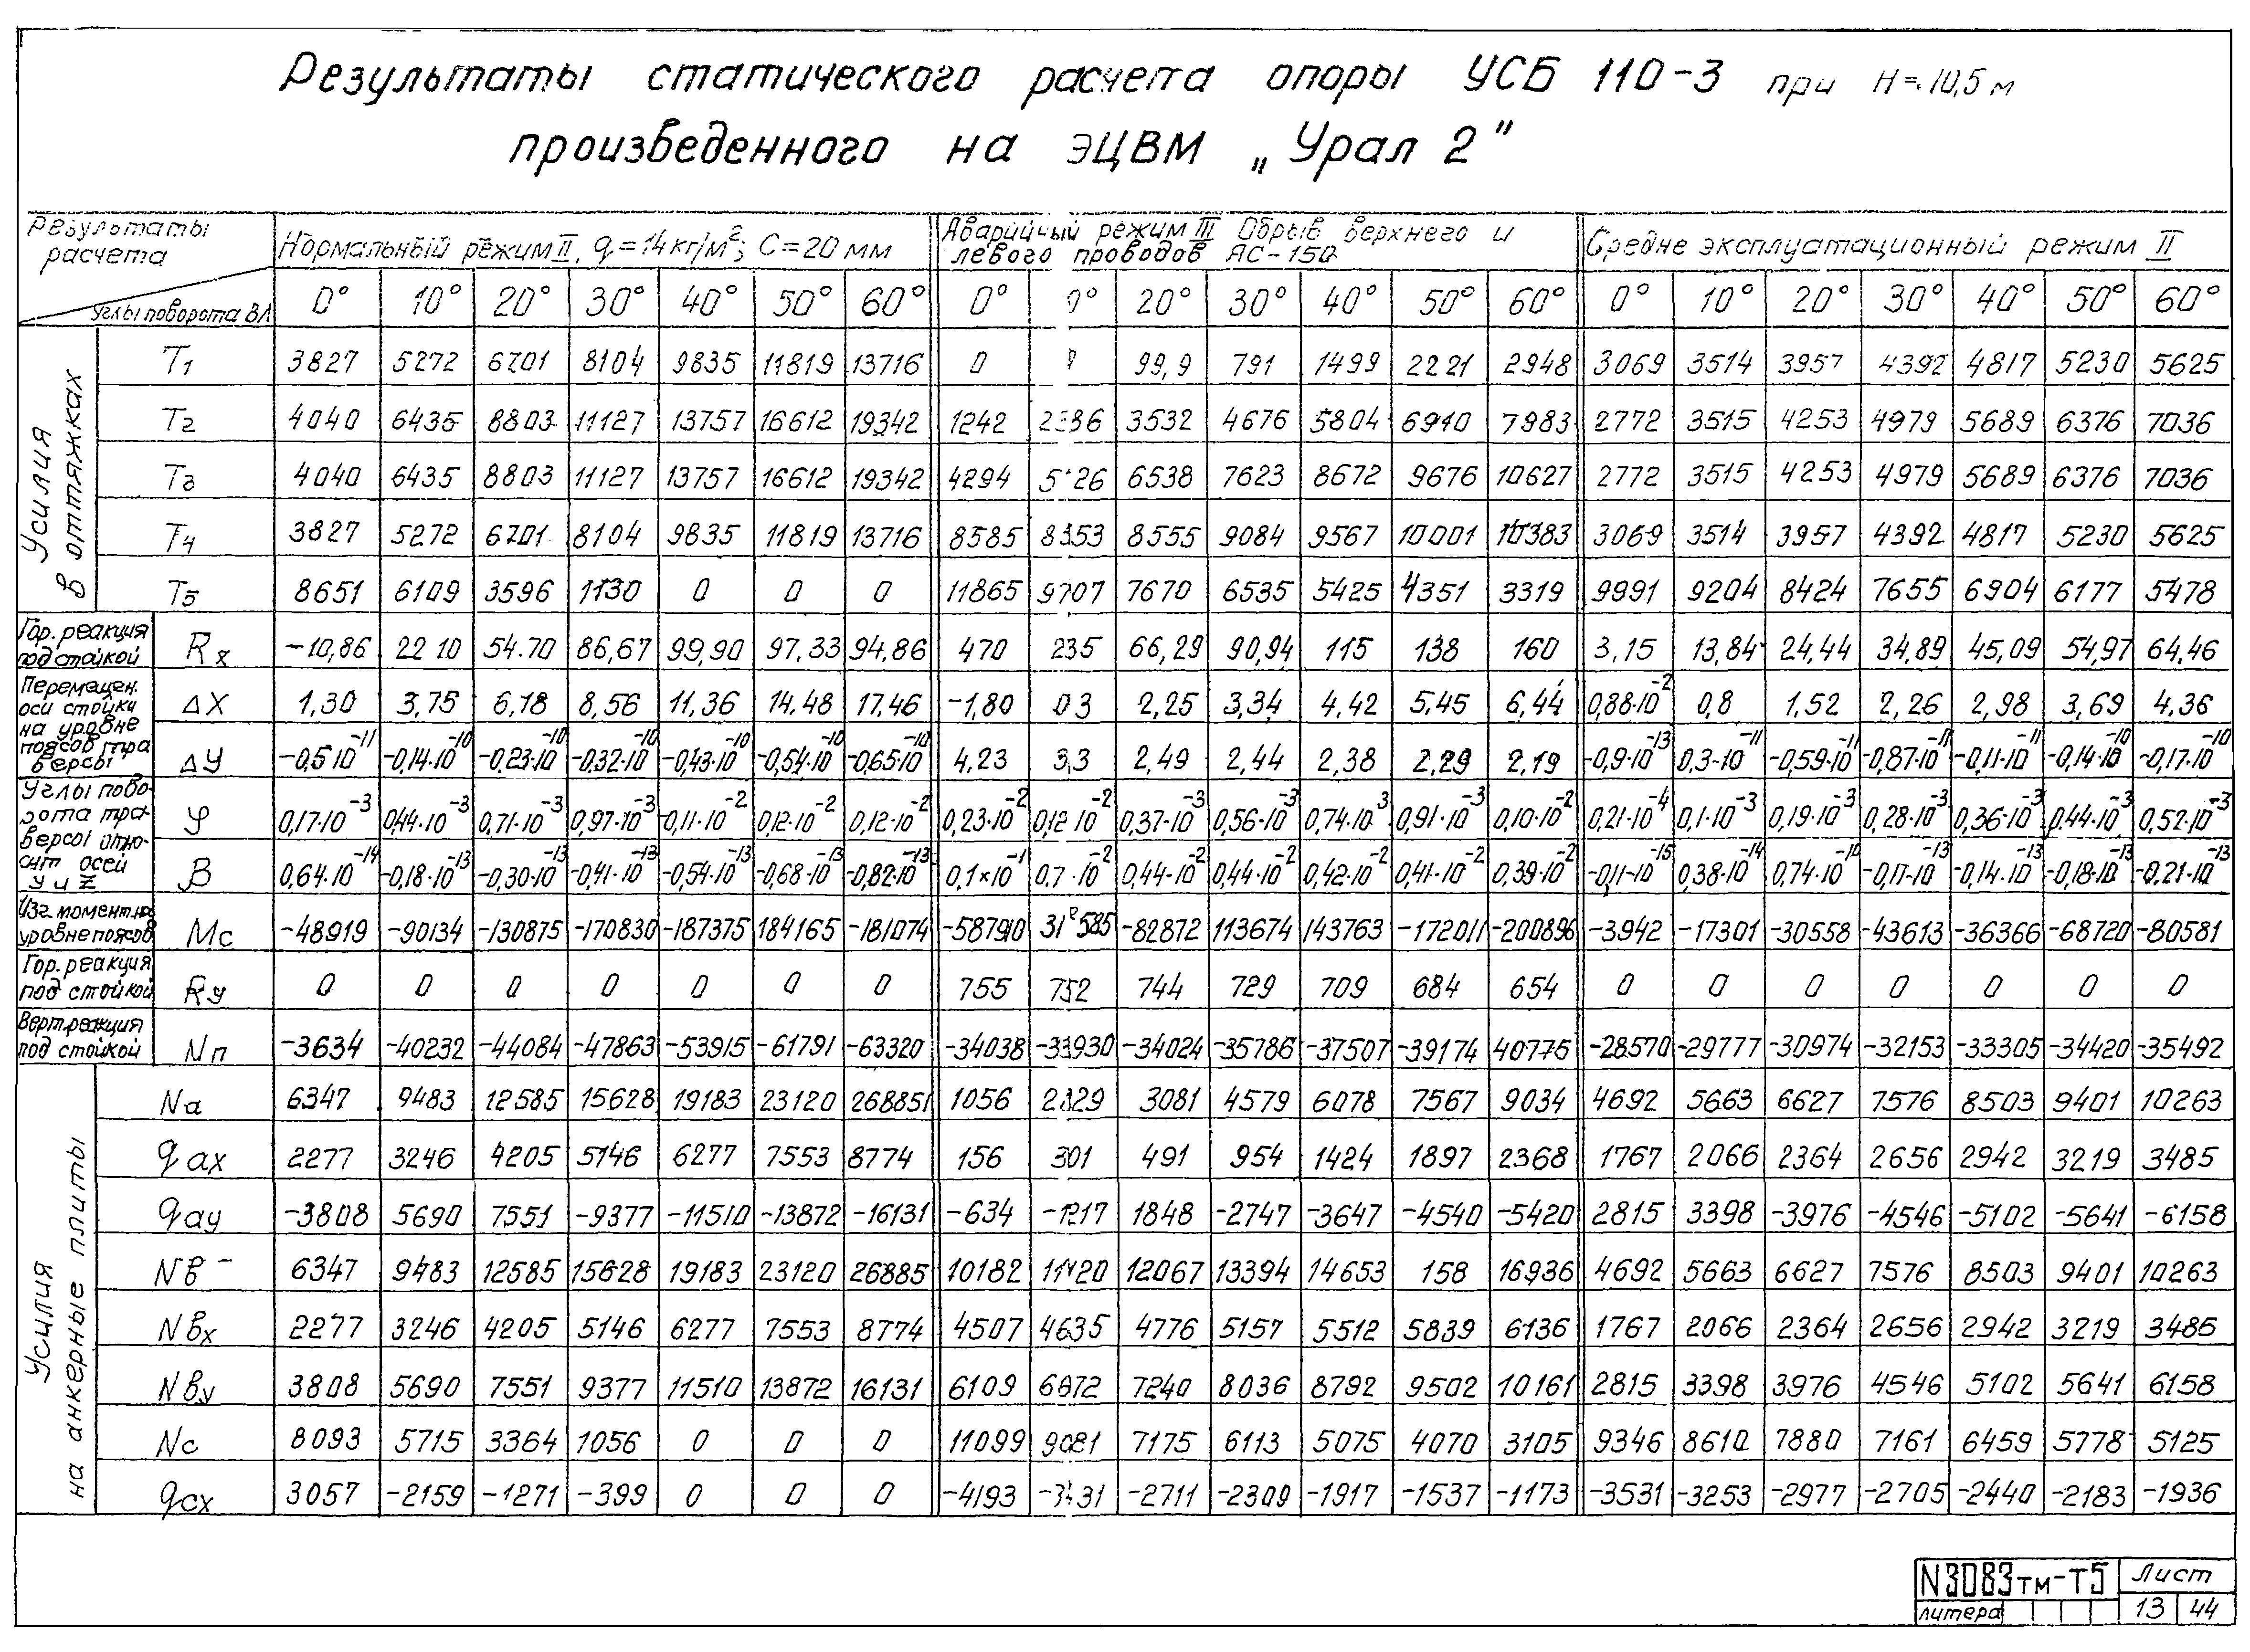 Результаты статического расчета опоры УСБ 110-3 при H=10,5 м
произведенного на ЭЦВМ „Урал 2"
Результаты расчета
Углы поворота ВЛ
Нормальный режим II, q=14 кг/м²; C=20 мм
Аварийный режим III Обрыв верхнего и левого проводов АС-150
Средне эксплуатационный режим II
0° 10° 20° 30° 40° 50° 60° 0° 0° 20° 30° 40° 50° 60° 0° 10° 20° 30° 40° 50° 60°
Усилия в оттяжках
T1 3827 5272 6701 8104 9835 11819 13716 0 99,9 791 1499 2221 2948 3069 3514 3957 4392 4817 5230 5625
T2 4040 6435 8803 11127 13757 16612 19342 1242 3532 4676 5804 6910 7983 2772 3515 4253 4979 5689 6376 7036
T3 4040 6435 8803 11127 13757 16612 19342 4294 6538 7623 8672 9676 10627 2772 3515 4253 4979 5689 6376 7036
T4 3827 5272 6701 8104 9835 11819 13716 8585 8353 8555 9084 9567 10001 10383 3069 3514 3957 4392 4817 5230 5625
T5 8651 6109 3596 1130 0 0 0 11865 9707 7670 6535 5425 4351 3319 9991 9204 8424 7655 6904 6177 5478
Гор. реакция под стойкой Rx -10,86 22 10 54.70 86,67 99,90 97,33 94,86 470 235 66,29 90,94 115 138 160 3,15 13,84 24,44 34,89 45,09 54,97 64,46
Перемещен. оси стойки на уровне поясов траверсы
ΔX 1,30 3,75 6,18 8,56 11,36 14.48 17.46 -1,80 03 2,25 3,34 4,42 5,45 6,44 0,88·10⁻² 0,8 1,52 2,26 2,98 3,69 4,36
ΔY -0,5·10⁻¹¹ -0,14·10⁻¹⁰ -0,23·10⁻¹⁰ -0,32·10⁻¹⁰ -0,43·10⁻¹⁰ -0,54·10⁻¹⁰ -0,65·10⁻¹⁰ 4,23 3,3 2,49 2,44 2,38 2,29 2,19 -0,9·10⁻¹³ 0,3·10⁻¹¹ -0,59·10⁻¹¹ -0,87·10⁻¹¹ -0,11·10⁻¹¹ -0,14·10⁻¹⁰ -0,17·10⁻¹⁰
Углы поворота траверсы относит осей Y и Z
φ 0,17·10⁻³ 0,44·10⁻³ 0,71·10⁻³ 0,97·10⁻³ 0,11·10⁻² 0,12·10⁻² 0,12·10⁻² 0,23·10⁻² 0,12 10⁻² 0,37·10⁻³ 0,56·10⁻³ 0,74·10³ 0,91·10⁻³ 0,10·10⁻² 0,21·10⁻⁴ 0,1·10⁻³ 0,19·10⁻³ 0,28·10⁻³ 0,36·10⁻³ 0,44·10⁻³ 0,52·10⁻³
β 0,64·10⁻¹⁴ -0,18·10⁻¹³ -0,30·10⁻¹³ -0,41·10⁻¹³ -0,54·10⁻¹³ -0,68·10⁻¹³ -0,82·10⁻¹³ 0,1×10⁻¹ 0,7·10⁻² 0,44·10⁻² 0,44·10⁻² 0,42·10⁻² 0,41·10⁻² 0,39·10⁻² -0,11·10⁻¹⁵ 0,38·10⁻¹⁴ -0,17·10⁻¹³ -0,14·10⁻¹³ -0,18·10⁻¹³ -0,21·10⁻¹³
Изг. момент на уровне поясов Mc -48919 -90134 -130875 -170830 -187375 184165 -181074 -587910 -82872 113674 143763 -172011 -200896 -3942 -17301 -30558 -43613 -36366 -68720 -80581
Гор. реакция под стойкой Ry 0 0 0 0 0 0 0 755 752 744 729 709 684 654 0 0 0 0 0 0 0
Верт. реакция под стойкой Nп -3634 -40232 -44084 -47863 -53915 -61791 -63320 -34038 -33930 -34024 -35786 -37507 -39174 40775 -28570 -29777 -30974 -32153 -33305 -34420 -35492
Усилия на анкерные плиты
Na 6347 9483 12585 15628 19183 23120 268851 1056 3081 4579 6078 7567 9034 4692 5663 6627 7576 8503 9401 10263
qax 2277 3246 4205 5146 6277 7553 8774 156 301 491 954 1424 1897 2368 1767 2066 2364 2656 2942 3219 3485
qay -3808 5690 7551 -9377 -11510 -13872 -16131 -634 -1217 1848 -2747 -3647 -4540 -5420 2815 3398 -3976 -4546 -5102 -5641 -6158
Nв- 6347 9483 12585 15628 19183 23120 26885 10182 12067 13394 14653 158 16936 4692 5663 6627 7576 8503 9401 10263
Nвx 2277 3246 4205 5146 6277 7553 8774 4507 4635 4776 5157 5512 5839 6136 1767 2066 2364 2656 2942 3219 3485
Nвy 3808 5690 7551 9377 11510 13872 16131 6109 7240 8036 8792 9502 10161 2815 3398 3976 4546 5102 5641 6158
Nc 8093 5715 3364 1056 0 0 0 11099 9081 7175 6113 5075 4070 3105 9346 8610 7880 7161 6459 5778 5125
qcx 3057 -2159 -1271 -399 0 0 0 -4193 -2711 -2309 -1917 -1537 -1173 -3531 -3253 -2977 -2705 -2440 -2183 -1936
N3083тм-Т5 Лист
литера 13 44